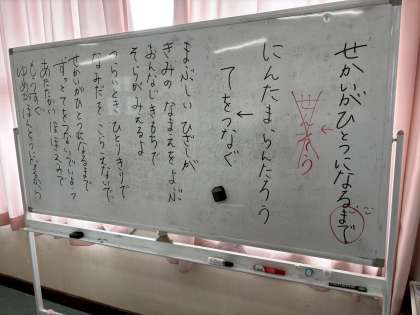 せかいがひとつになるまで
そう
にんたまらんたろう
←
てをつなぐ
まぶしい ひざしが
きみの なまえを よぶ
おんなじ きもちで
そらが みえるよ
つらいとき ひとりきりで
なみだを こらえないで
せかいが ひとつになるまで
ずっと てを つないでいよう
あたたかい ほほえみで
もうすぐ
ゆめが ほんとうに なるから